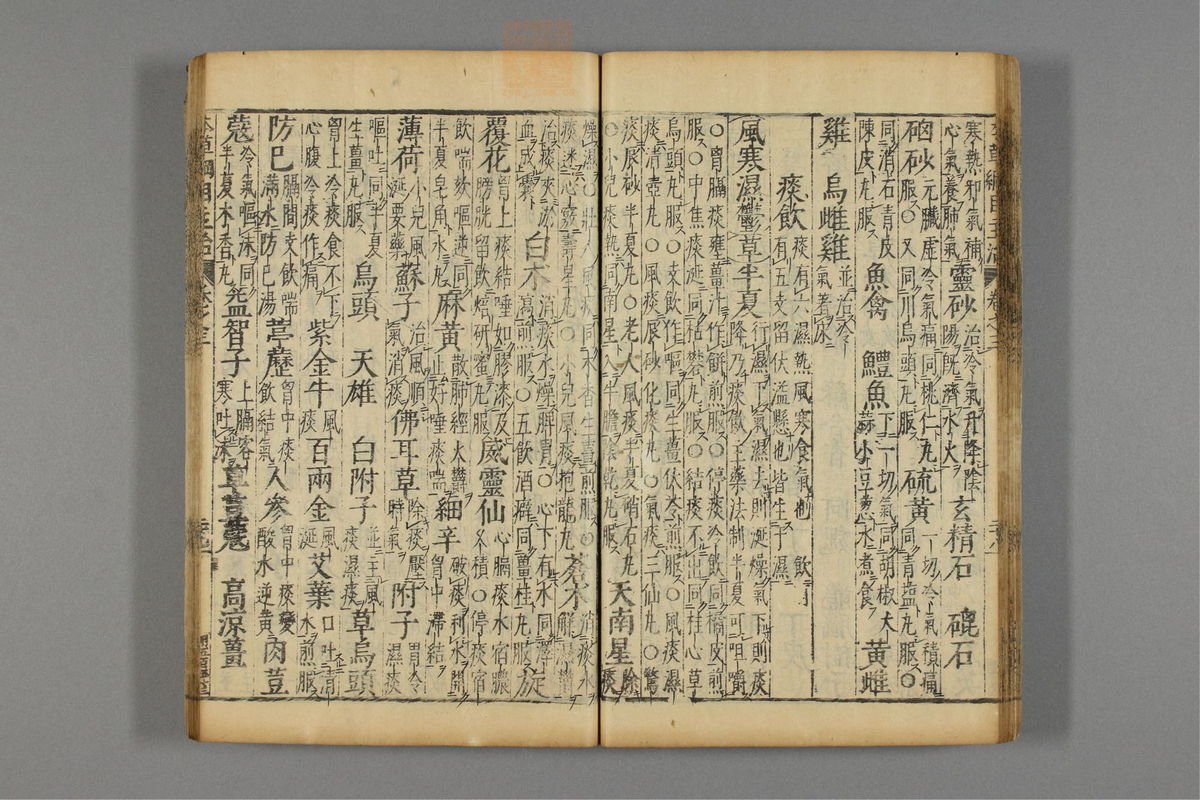 寒熱邪氣補
心氣養肺氣靈砂治冷氣升降陰陽既濟水火玄精石 硇石
硇砂元臟虛冷氣痛同桃仁丸服又同川烏頭丸服硫黃一切冷氣積痛同青鹽丸服
同消石青皮陳皮丸服 魚禽 鱧魚下一切氣同胡椒大蒜小豆葱水煮食 黃雌
雞 烏雌雞並治冷氣著床
痰飲痰有六濕熱風寒食氣也飲有五支留伏溢懸也皆生于濕
風寒濕鬱草半夏行濕下氣濕去則涎燥氣下則痰降乃痰飲主藥法制半夏可咀嚼
○胃膈痰壅薑汁作餅煎服○停痰冷飲同橘皮煎服○中焦痰涎同枯礬丸服○結痰不出同桂心草
烏頭丸服○支飲作嘔同生薑伏苓煎服○風痰濕痰清壺丸○風痰辰砂化痰丸○氣痰三仙丸○驚
痰辰砂半夏丸○老人風痰半夏硝石丸○小兒痰熱同南星入牛膽陰乾丸服 天南星除痰
燥濕○壯人風痰同木香生薑煎服○痰迷心竅壽星丸○小兒風痰抱龍丸 蒼朮消痰水解濕鬱
治痰夾瘀血成囊 白朮消痰水燥脾胃○心下有水同澤瀉煎服○五飲酒癖同薑桂丸服 旋
覆花胷上痰結唾如膠漆及膀胱留飲焙研蜜丸服 威靈仙心膈痰水宿膿久積○停痰宿
飲喘欬嘔逆同半夏皂角水丸 麻黃散肺經火鬱止好唾痰喘 細辛破痰利水開胷中滯結
薄荷小兒風涎要藥 蘇子治風順氣消痰 佛耳草除痰壓時氣 附子胃冷濕痰
嘔吐同半夏生薑丸服 烏頭 天雄 白附子並主風痰濕痰 草烏頭
胷上冷痰食不下心腹冷痰作痛 紫金牛風痰 百兩金風涎 艾葉口吐清水煎服
防巳膈間支飲喘滿水防巳湯 葶藶胷中痰飲結氣 人參胷中痰變酸水逆黃 肉荳
蔻冷氣嘔沫同半夏木香丸 益智子上膈客寒吐沫 草荳蔻 高涼薑